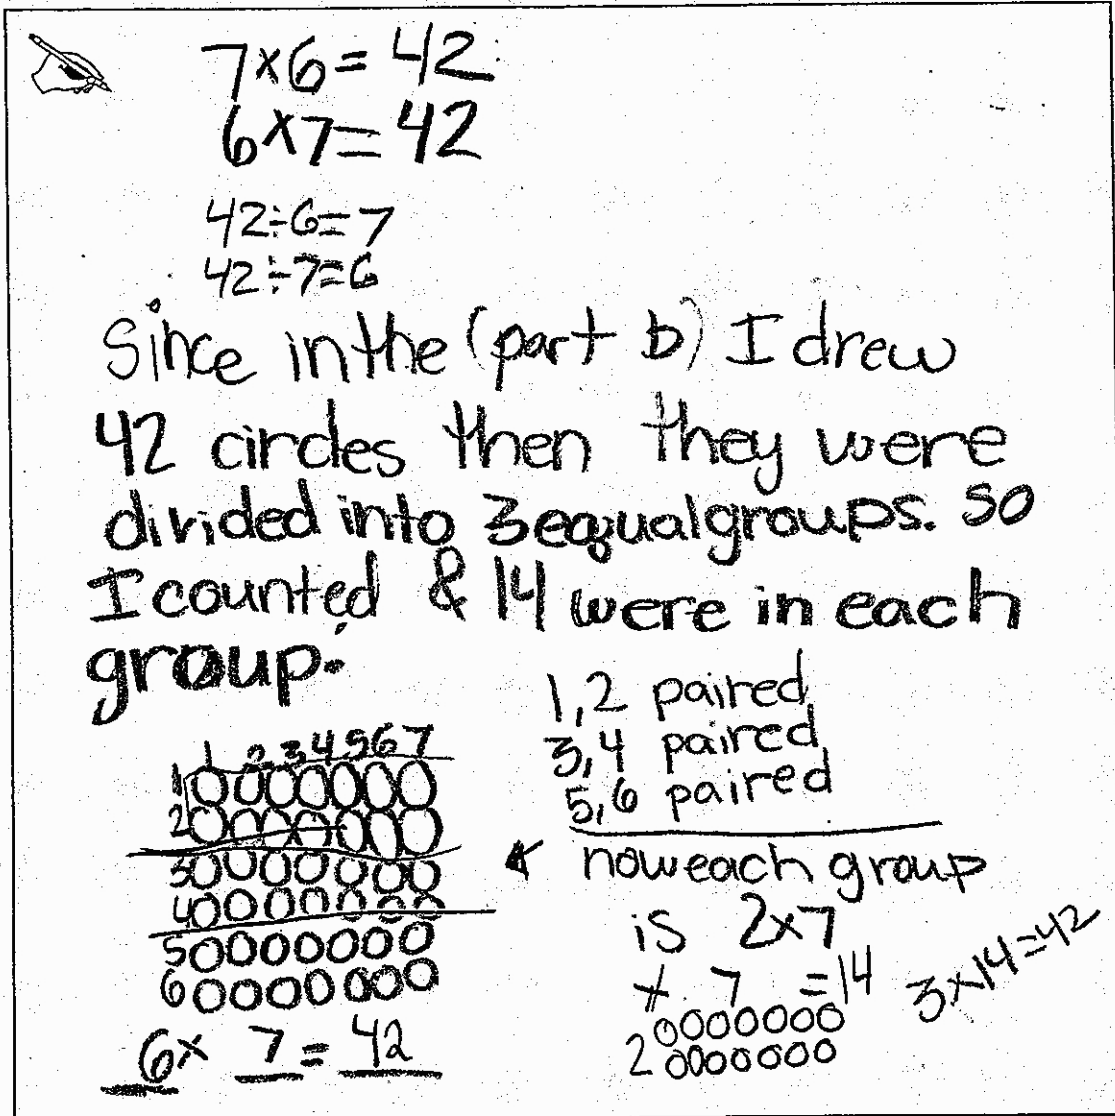 7×6=42
6×7=42
42÷6=7
42÷7=6
Since in the (part b) I drew
42 circles then they were
divided into 3 equal groups. So
I counted & 14 were in each
group.
1 2 3 4 5 6 7
1
2
3
4
5
6
6 × 7 = 42
1,2 paired
3,4 paired
5,6 paired
now each group
is 2×7
× 7 = 14
2
3×14=42